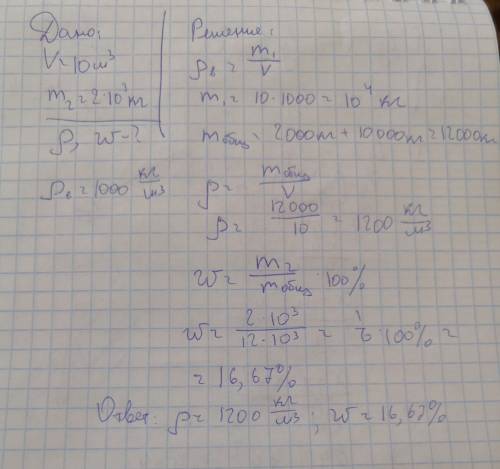 Дано:
V = 10 м³
m₂ = 2·10³ кг
ρ, w - ?
ρв = 1000 кг/м³
Решение:
ρв = m₁/V
m₁ = 10·1000 = 10⁴ кг
mобщ = 2000 кг + 10000 кг = 12000 кг
ρ = mобщ/V
ρ = 12000/10 = 1200 кг/м³
w = m₂/mобщ · 100%
w = 2·10³/12·10³ = 1/6 · 100% =
= 16,67%
Ответ: ρ = 1200 кг/м³; w = 16,67%